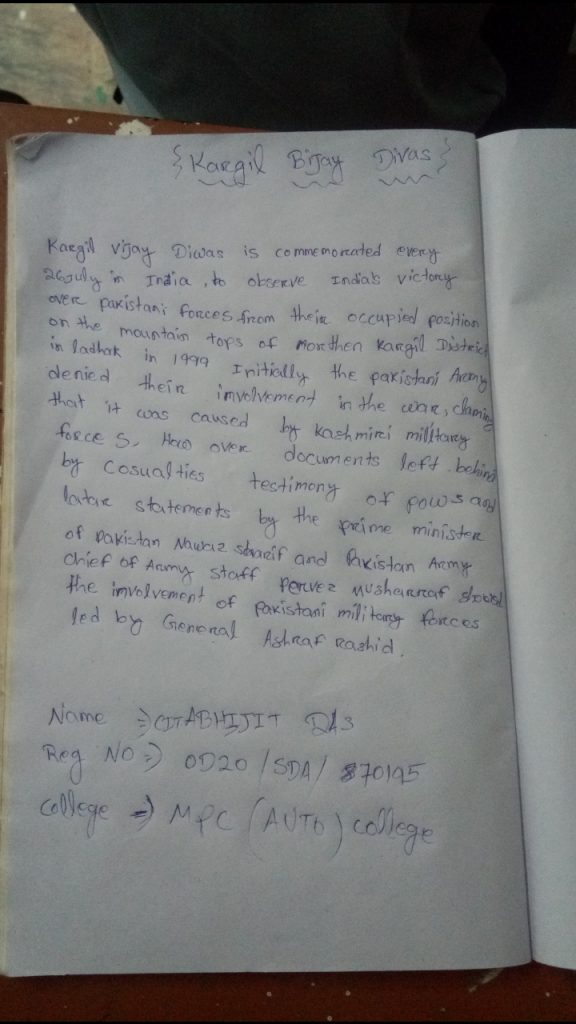 {Kargil Bijay Divas}
Kargil vijay Diwas is commemorated every
26 July in India, to observe India's victory
over pakistani forces from their occupied position
on the mountain tops of Northen Kargil District
in ladhak in 1999 Initially the pakistani Army
denied their involvement in the war, claming
that it was caused by Kashmiri military
force s. How over documents left behind
by cosualties testimony of pows and
latar statements by the prime minister
of Pakistan Nawaz sharif and Pakistan Army
chief of Army staff Pervez musharraf showed
the involvement of pakistani military forces
led by General Ashraf rashid.
Name => CJTABHIJIT DAS
Reg NO => OD20/SDA/870145
College => MPC (AUTO) college